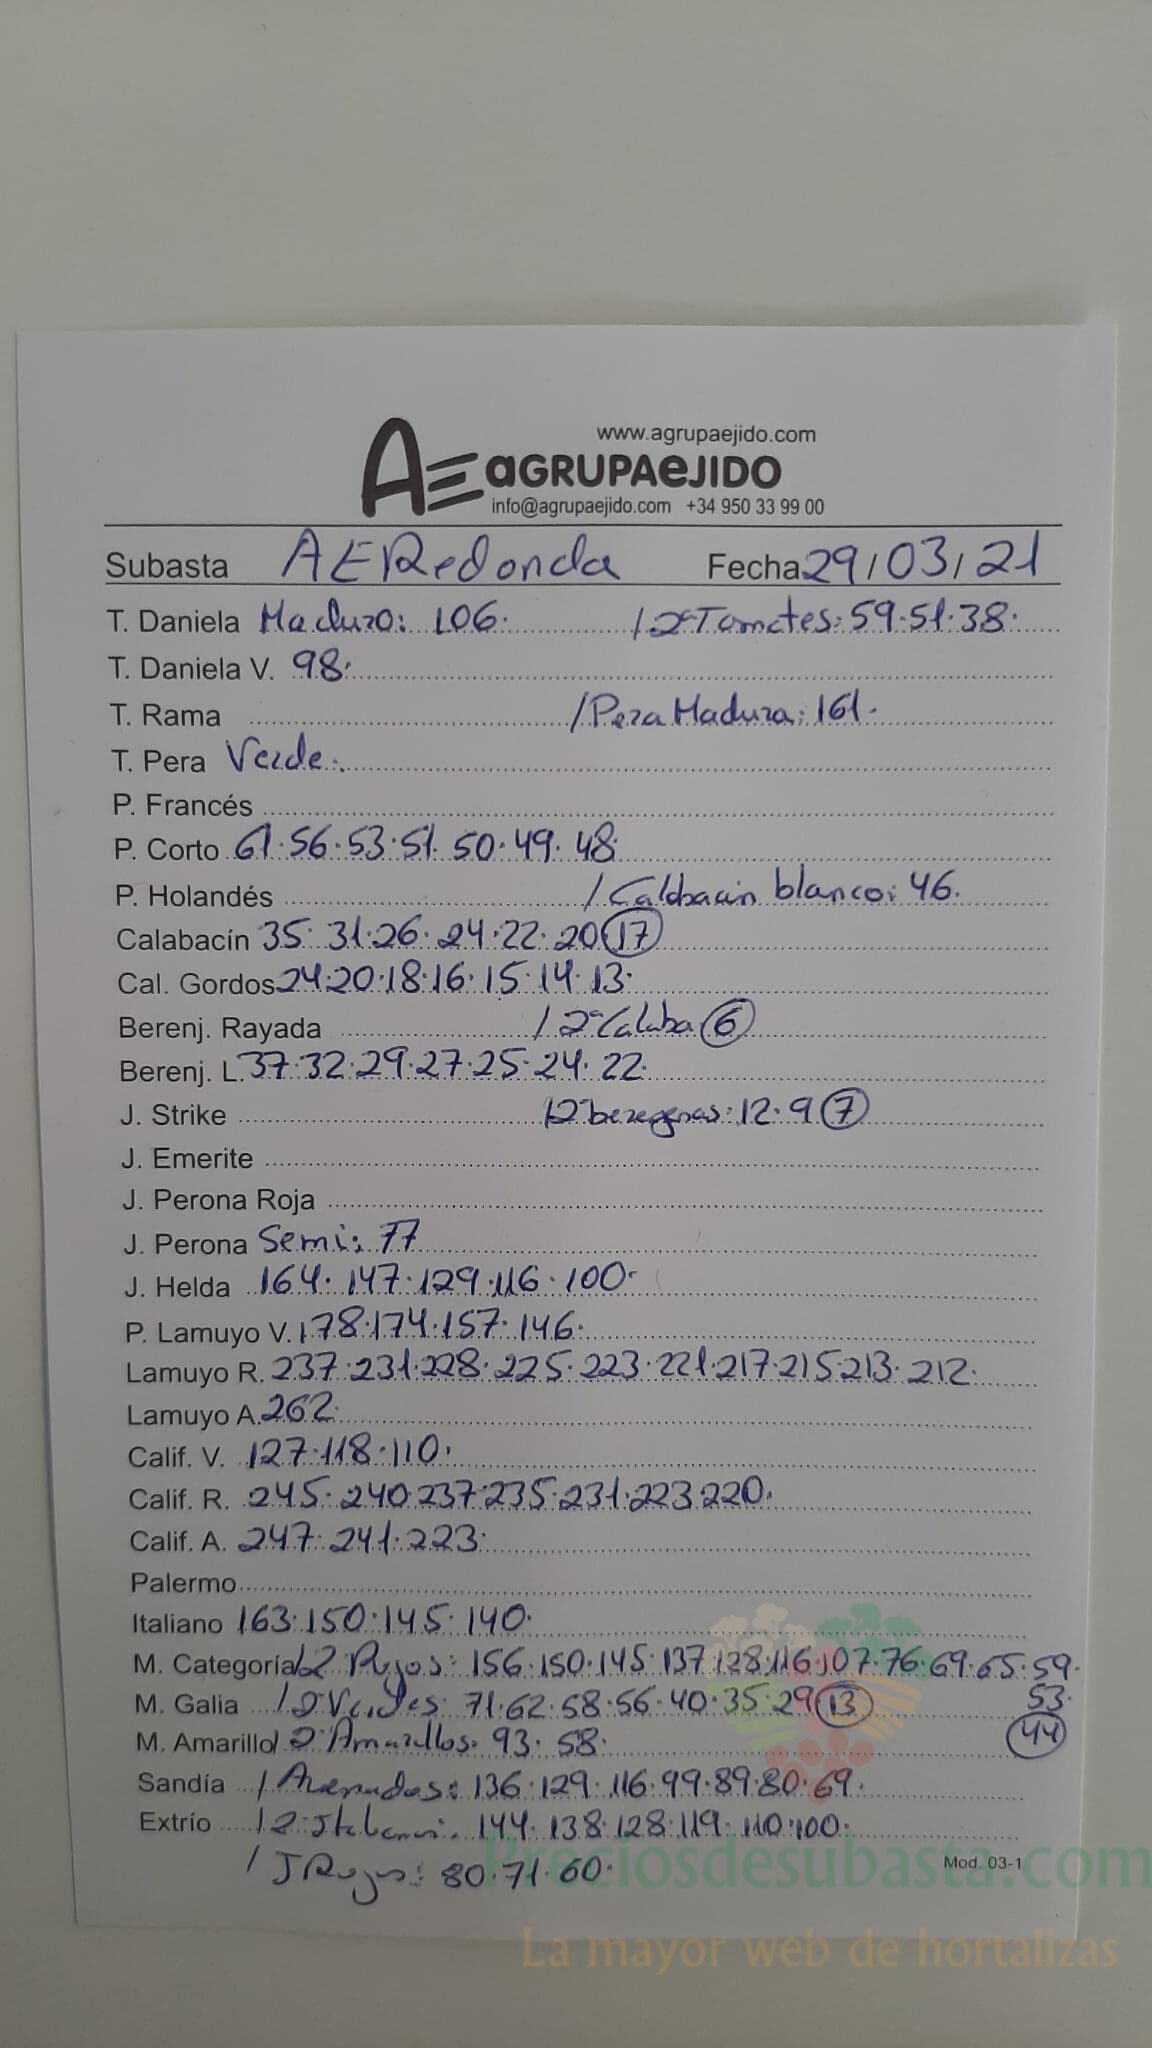 www.agrupaejido.com
AE aGRUPAeJIDO
info@agrupaejido.com +34 950 33 99 00
Subasta AE Redonda Fecha 29/03/21
T. Daniela Maduro: 106. / 2ª Tomates: 59.51.38.
T. Daniela V. 98.
T. Rama / Pera Madura: 161.
T. Pera Verde.
P. Francés
P. Corto 61.56.53.51.50.49.48.
P. Holandés / Calabacin blanco: 46.
Calabacín 35.31.26.24.22.20 17
Cal. Gordos 24.20.18.16.15.14.13.
Berenj. Rayada / 2ª Calaba 6
Berenj. L. 37.32.29.27.25.24.22.
J. Strike / 2ª beregenas: 12.9 7
J. Emerite
J. Perona Roja
J. Perona Semi: 77
J. Helda 164.147.129.116.100.
P. Lamuyo V. 178.174.157.146.
Lamuyo R. 237.231.228.225.223.221.217.215.213.212.
Lamuyo A. 262.
Calif. V. 127.118.110.
Calif. R. 245.240.237.235.231.223.220.
Calif. A. 247.241.223.
Palermo
Italiano 163.150.145.140.
M. Categoría / 2ª Rojos: 156.150.145.137.128.116.107.76.69.65.59.
M. Galia / 2ª Verdes: 71.62.58.56.40.35.29 13 53.
M. Amarillo / 2ª Amarillos: 93.58. 44
Sandía / : 136.129.116.99.89.80.69.
Extrío / 2ª . 144.138.128.119.110.100.
/ J Rojos: 80.71.60.
Mod. 03-1
Preciosdesubasta.com
La mayor web de hortalizas